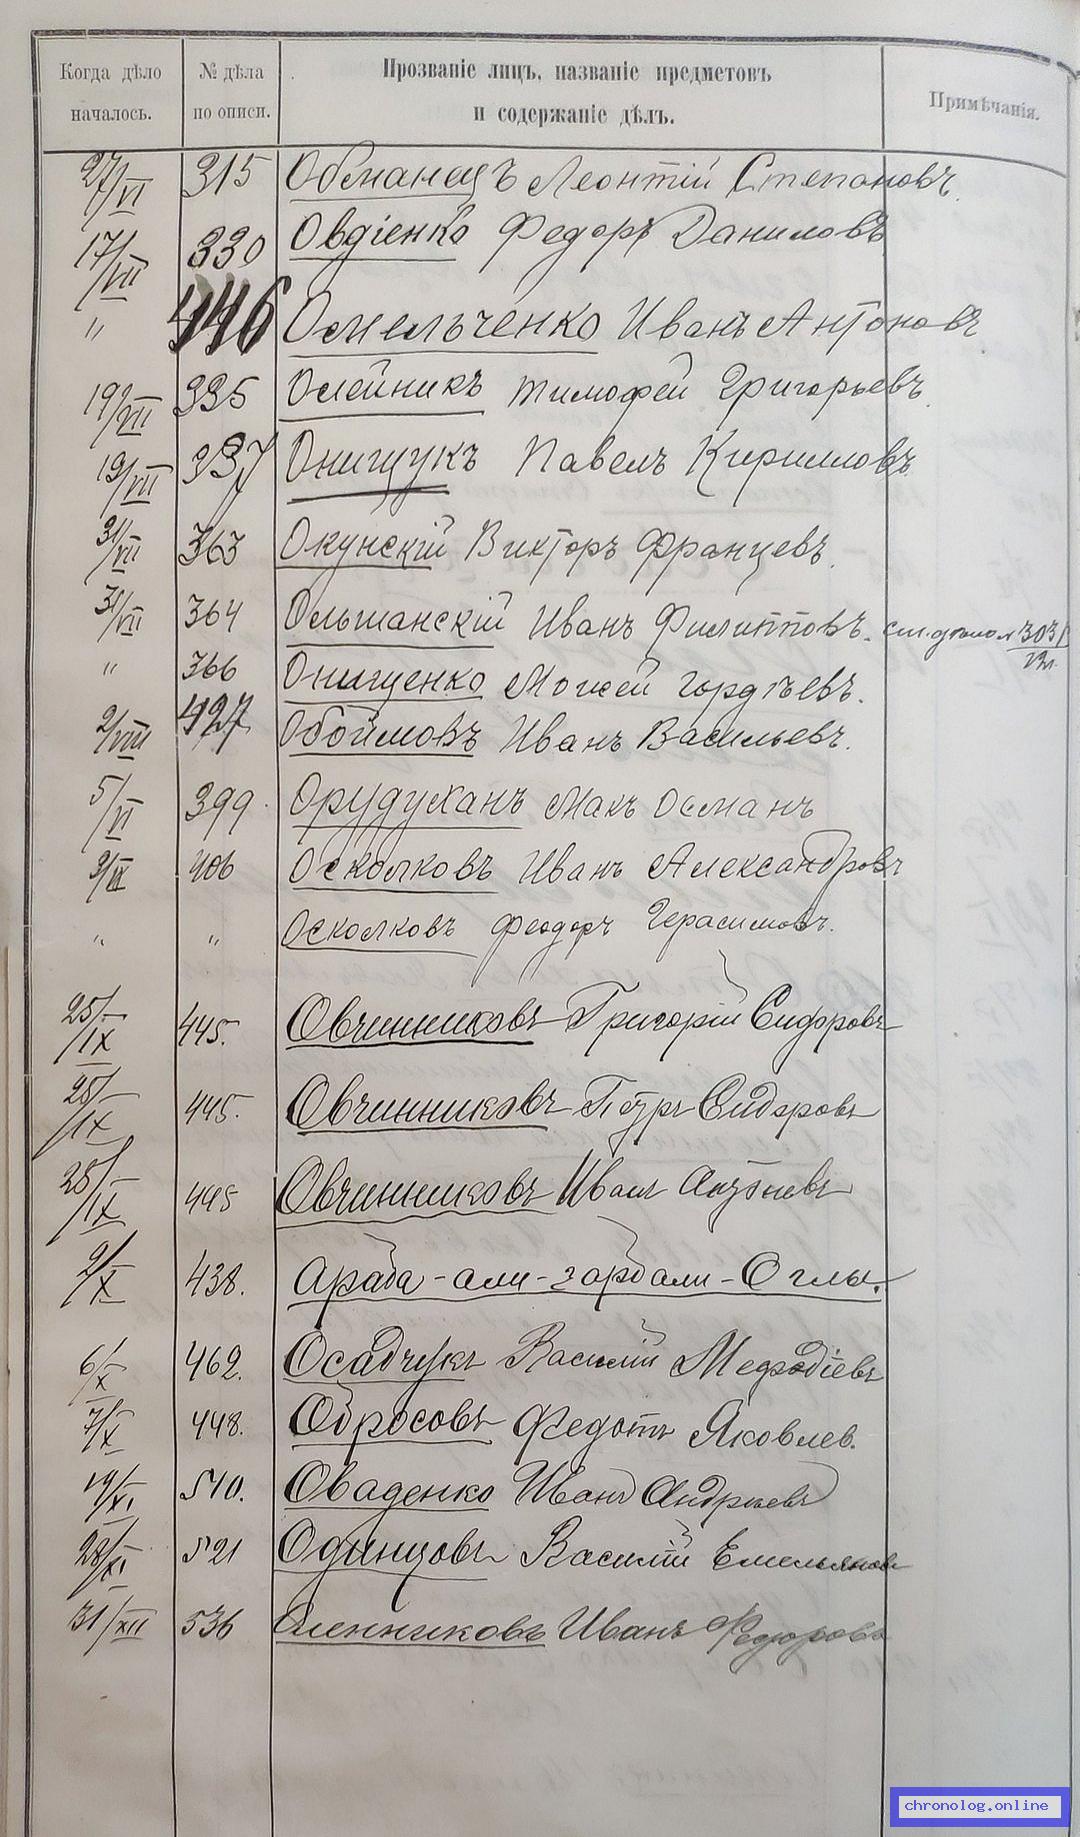 Когда дѣло началось. № дѣла по описи. Прозваніе лицъ, названіе предметовъ и содержаніе дѣлъ. Примѣчанія.
27/VI 315 Обманецъ Леонтій Степановъ.
17/VII 330 Овдіенко Федоръ Даниловъ
" 446 Омельченко Иванъ Антоновъ
19/VII 335 Олейникъ Тимофей Григорьевъ.
19/VII 337 Онищукъ Павелъ Кирилловъ.
31/VII 363 Окунскій Викторъ Францевъ.
31/VII 364 Ольшанскій Иванъ Филипповъ. См. дѣло № 303
" 366 Онищенко Мойсей Гордѣевъ.
2/VIII 427 Обоймовъ Иванъ Васильевъ.
5/VI 399 Орудуханъ Макъ Османъ
9/IX 406 Осколковъ Иванъ Александровъ
" " Осколковъ Феодоръ Герасимовъ.
25/IX 445. Овчинниковъ Григорій Сидоровъ
25/IX 445. Овчинниковъ Петръ Сидоровъ
25/IX 445 Овчинниковъ Иванъ Антоневъ
2/X 438. Араба-али-зорбали-Оглы.
6/X 462. Осадчукъ Василій Мефодіевъ
7/X 448. Обросовъ Федотъ Яковлев.
19/XI 510. Оваденко Иванъ Андреевъ
28/XI 521 Одинцовъ Василій Емельяновъ
31/XII 536 Оленниковъ Иванъ Федоровъ
chronolog.online